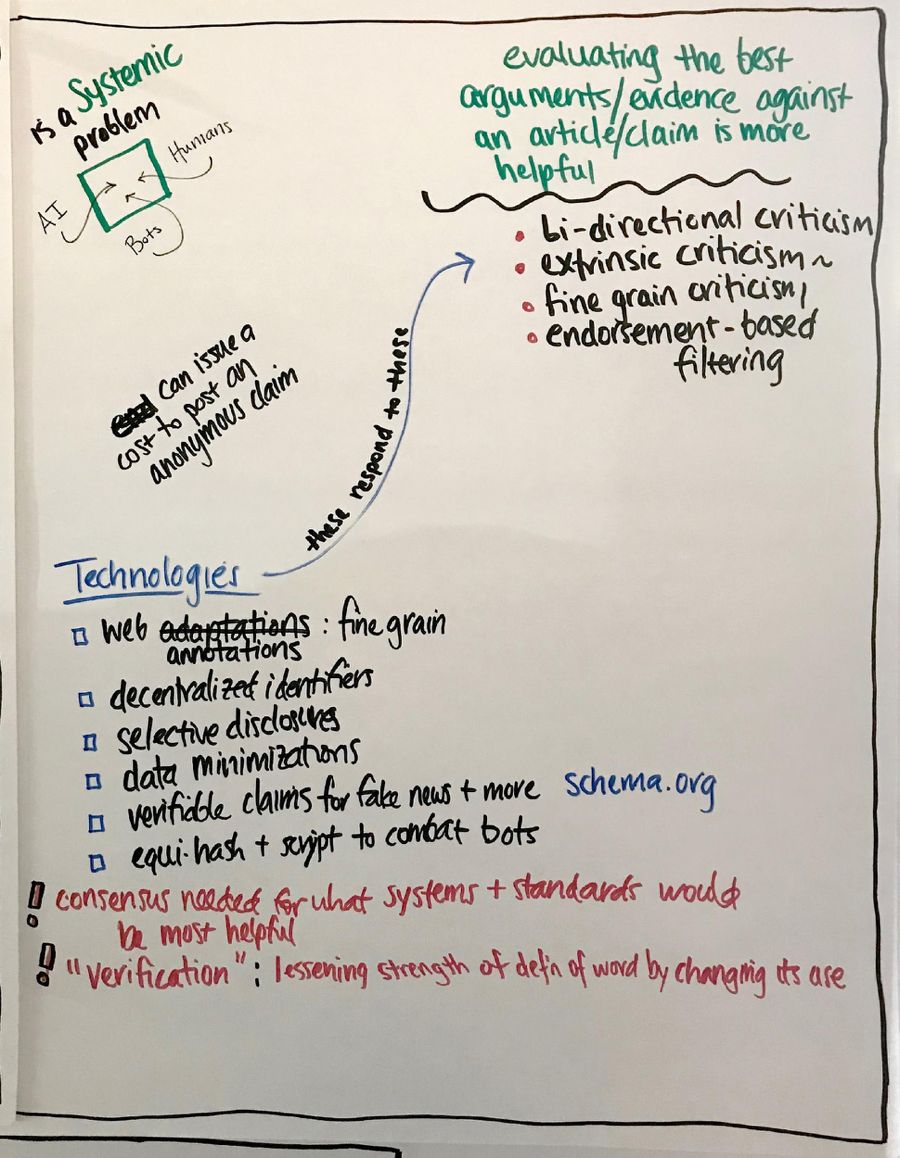 is a Systemic
problem
Humans
AI
Bots
evaluating the best
arguments/evidence against
an article/claim is more
helpful
• bi-directional criticism
• extrinsic criticism ~
• fine grain criticism
• endorsement-based
filtering
can issue a
cost to post an
anonymous claim
these respond to these
Technologies
web adaptations : fine grain
annotations
decentralized identifiers
selective disclosures
data minimizations
verifiable claims for fake news + more schema.org
equi-hash + script to combat bots
! consensus needed for what systems + standards would
be most helpful
! "verification": lessening strength of defn of word by changing its use